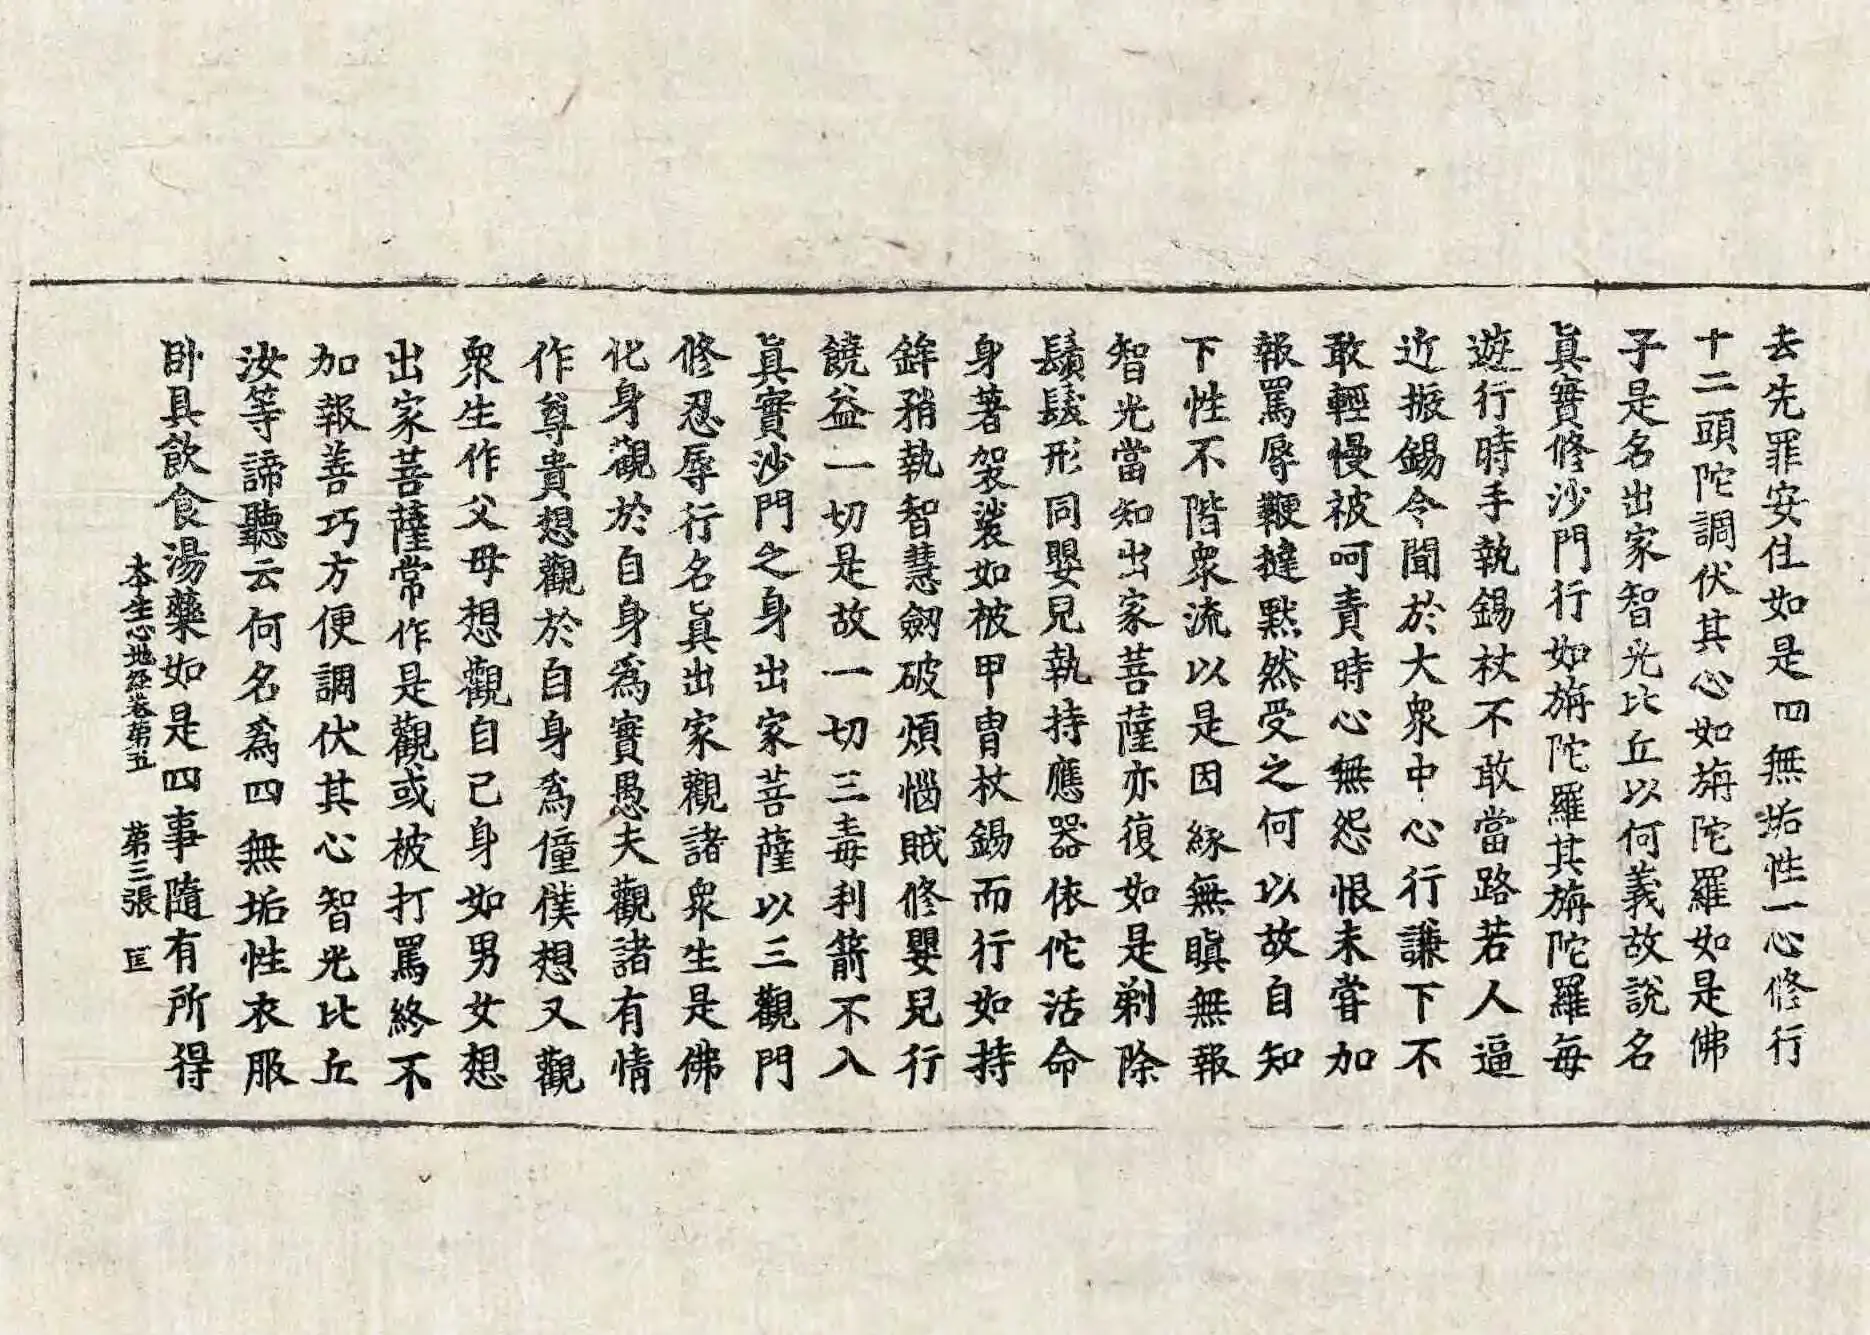 去先罪安住如是四無垢性一心修行
十二頭陀調伏其心如旃陀羅如是佛
子是名出家智光比丘以何義故說名
真實修沙門行如旃陀羅其旃陀羅每
遊行時手執錫杖不敢當路若人逼
近振錫令聞於大衆中心行謙下不
敢輕慢被呵責時心無怨恨未甞加
報罵辱鞭撻默然受之何以故自知
下性不階衆流以是因緣無瞋無報
智光當知出家菩薩亦復如是剃除
鬚髮形同嬰兒執持應器依佗活命
身著袈裟如被甲冑杖錫而行如持
鉾矟執智慧劒破煩惱賊修嬰兒行
饒益一切是故一切三毒利箭不入
真實沙門之身出家菩薩以三觀門
修忍辱行名真出家觀諸衆生是佛
化身觀於自身爲實愚夫觀諸有情
作尊貴想觀於自身爲僮僕想又觀
衆生作父母想觀自己身如男女想
出家菩薩常作是觀或被打罵終不
加報善巧方便調伏其心智光比丘
汝等諦聽云何名爲四無垢性衣服
卧具飲食湯藥如是四事隨有所得
本生心地經卷第五 第三張 匡